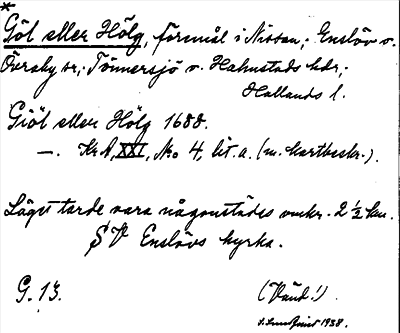 *
Göl eller Hölg, föremål i Nissan; Enslöv o.
Övraby sr; Tönnersjö o. Halmstads hdr;
Hallands l.
Giöl eller Hölg 1688.
—. Kr A, XXI, No 4, lit. a. (m. kartbeskr.).
Läget torde vara någonstädes omkr. 2 ½ km.
SV Enslövs kyrka.
G. 13. (Vänd!).
1938.